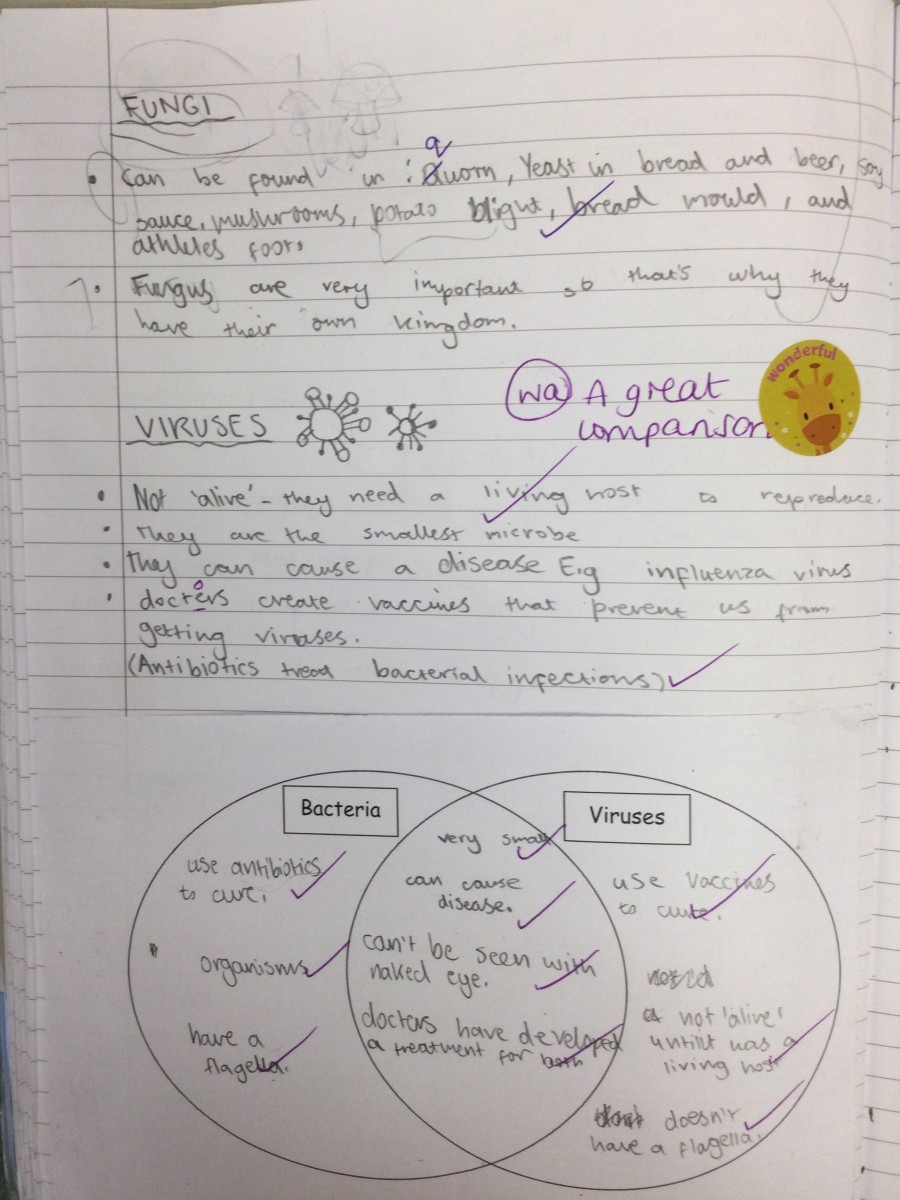 FUNGI
q
• Can be found in: Quorn, Yeast in bread and beer, soy
sauce, mushrooms, potato blight, bread mould, and
athletes foot.
• Fungus are very important so that's why they
have their own kingdom.
wonderful
wa A great
comparison.
VIRUSES
• Not 'alive' - they need a living host to repreduce.
• They are the smallest microbe
• They can cause a disease E.g influenza virus
o
• docters create vaccines that prevent us from
getting viruses.
(Antibiotics tread bacterial infections)
Bacteria
Viruses
very small
use antibiotics
to cure.
can cause
disease.
use vaccines
to cure.
organisms
can't be seen with
naked eye.
have a
flagella.
doctors have developed
a treatment for both
not 'alive'
untill has a
living host
doesn't
have a flagella.